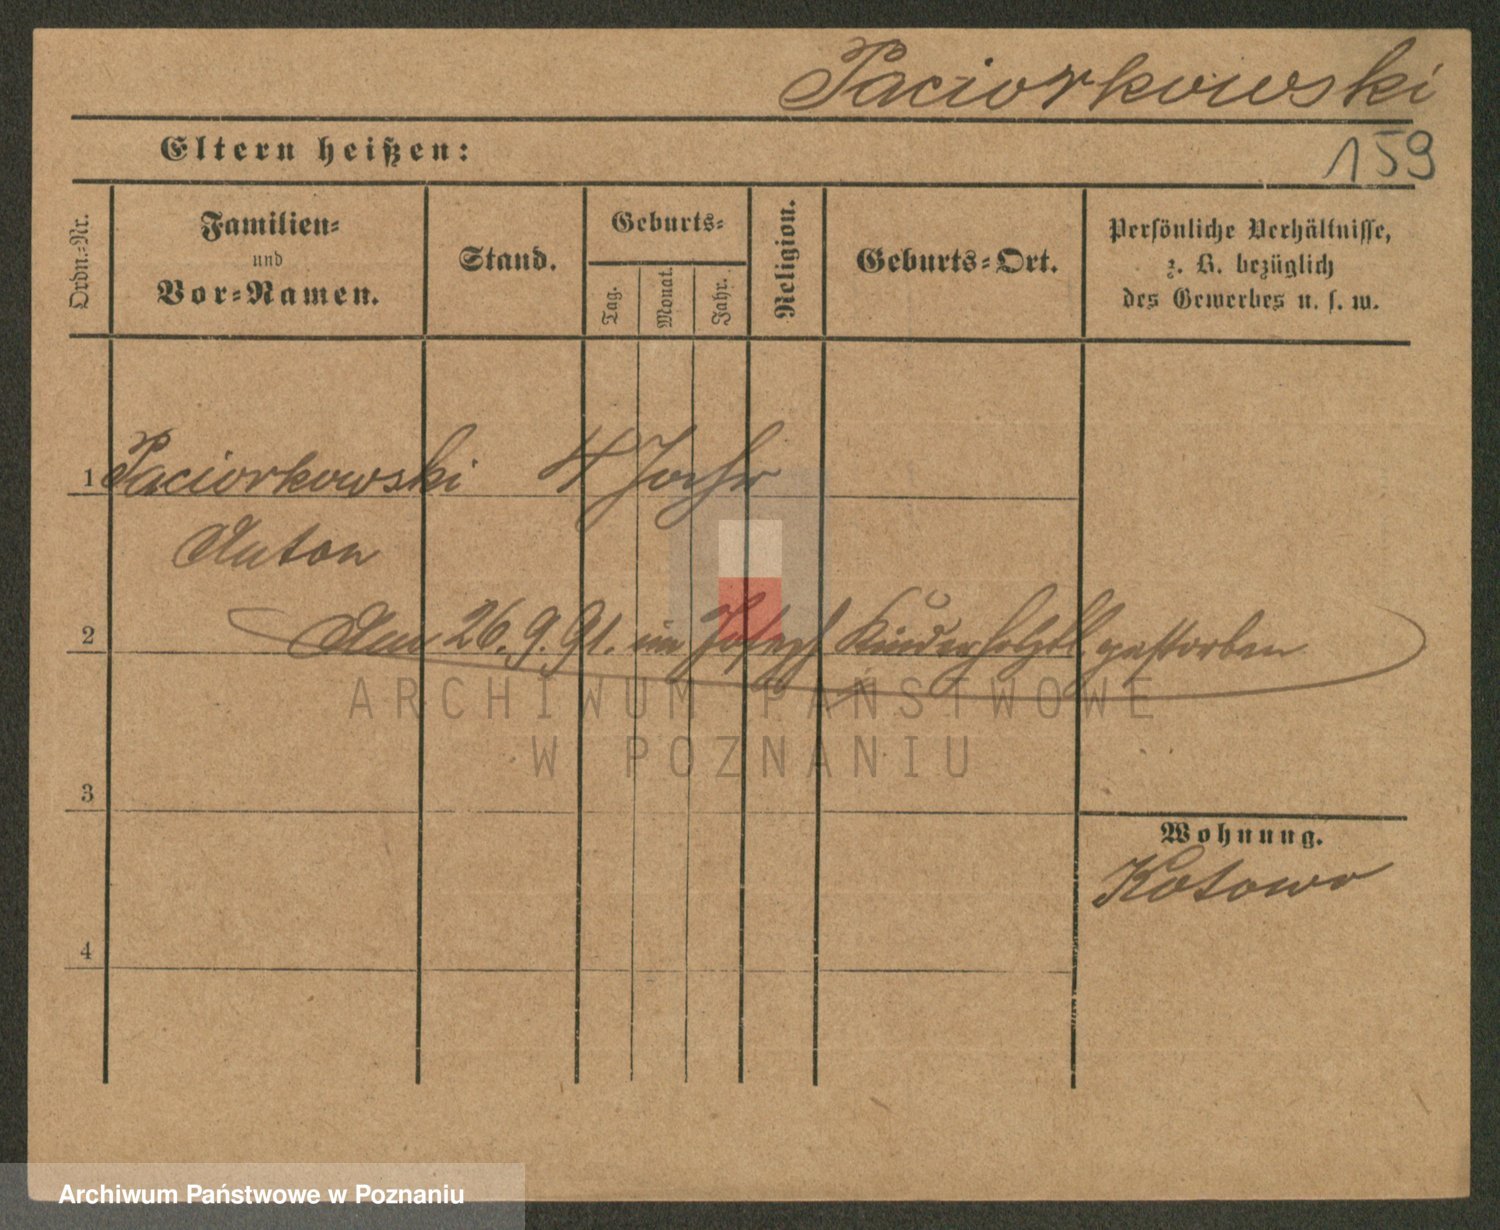 Paciorkowski
159
Eltern heißen:
Ordn.-Nr.
Familien-
und
Vor-Namen.
Stand.
Geburts-
Tag.
Monat.
Jahr.
Religion.
Geburts-Ort.
Persönliche Verhältnisse,
z. B. bezüglich
des Gewerbes u. s. w.
1 Paciorkowski 4 Jahr
Anton
2 Am 26.9.91. im Joseph Kinderhospital gestorben
ARCHIWUM PAŃSTWOWE
W POZNANIU
3
Wohnung.
Kotowo
4
Archiwum Państwowe w Poznaniu